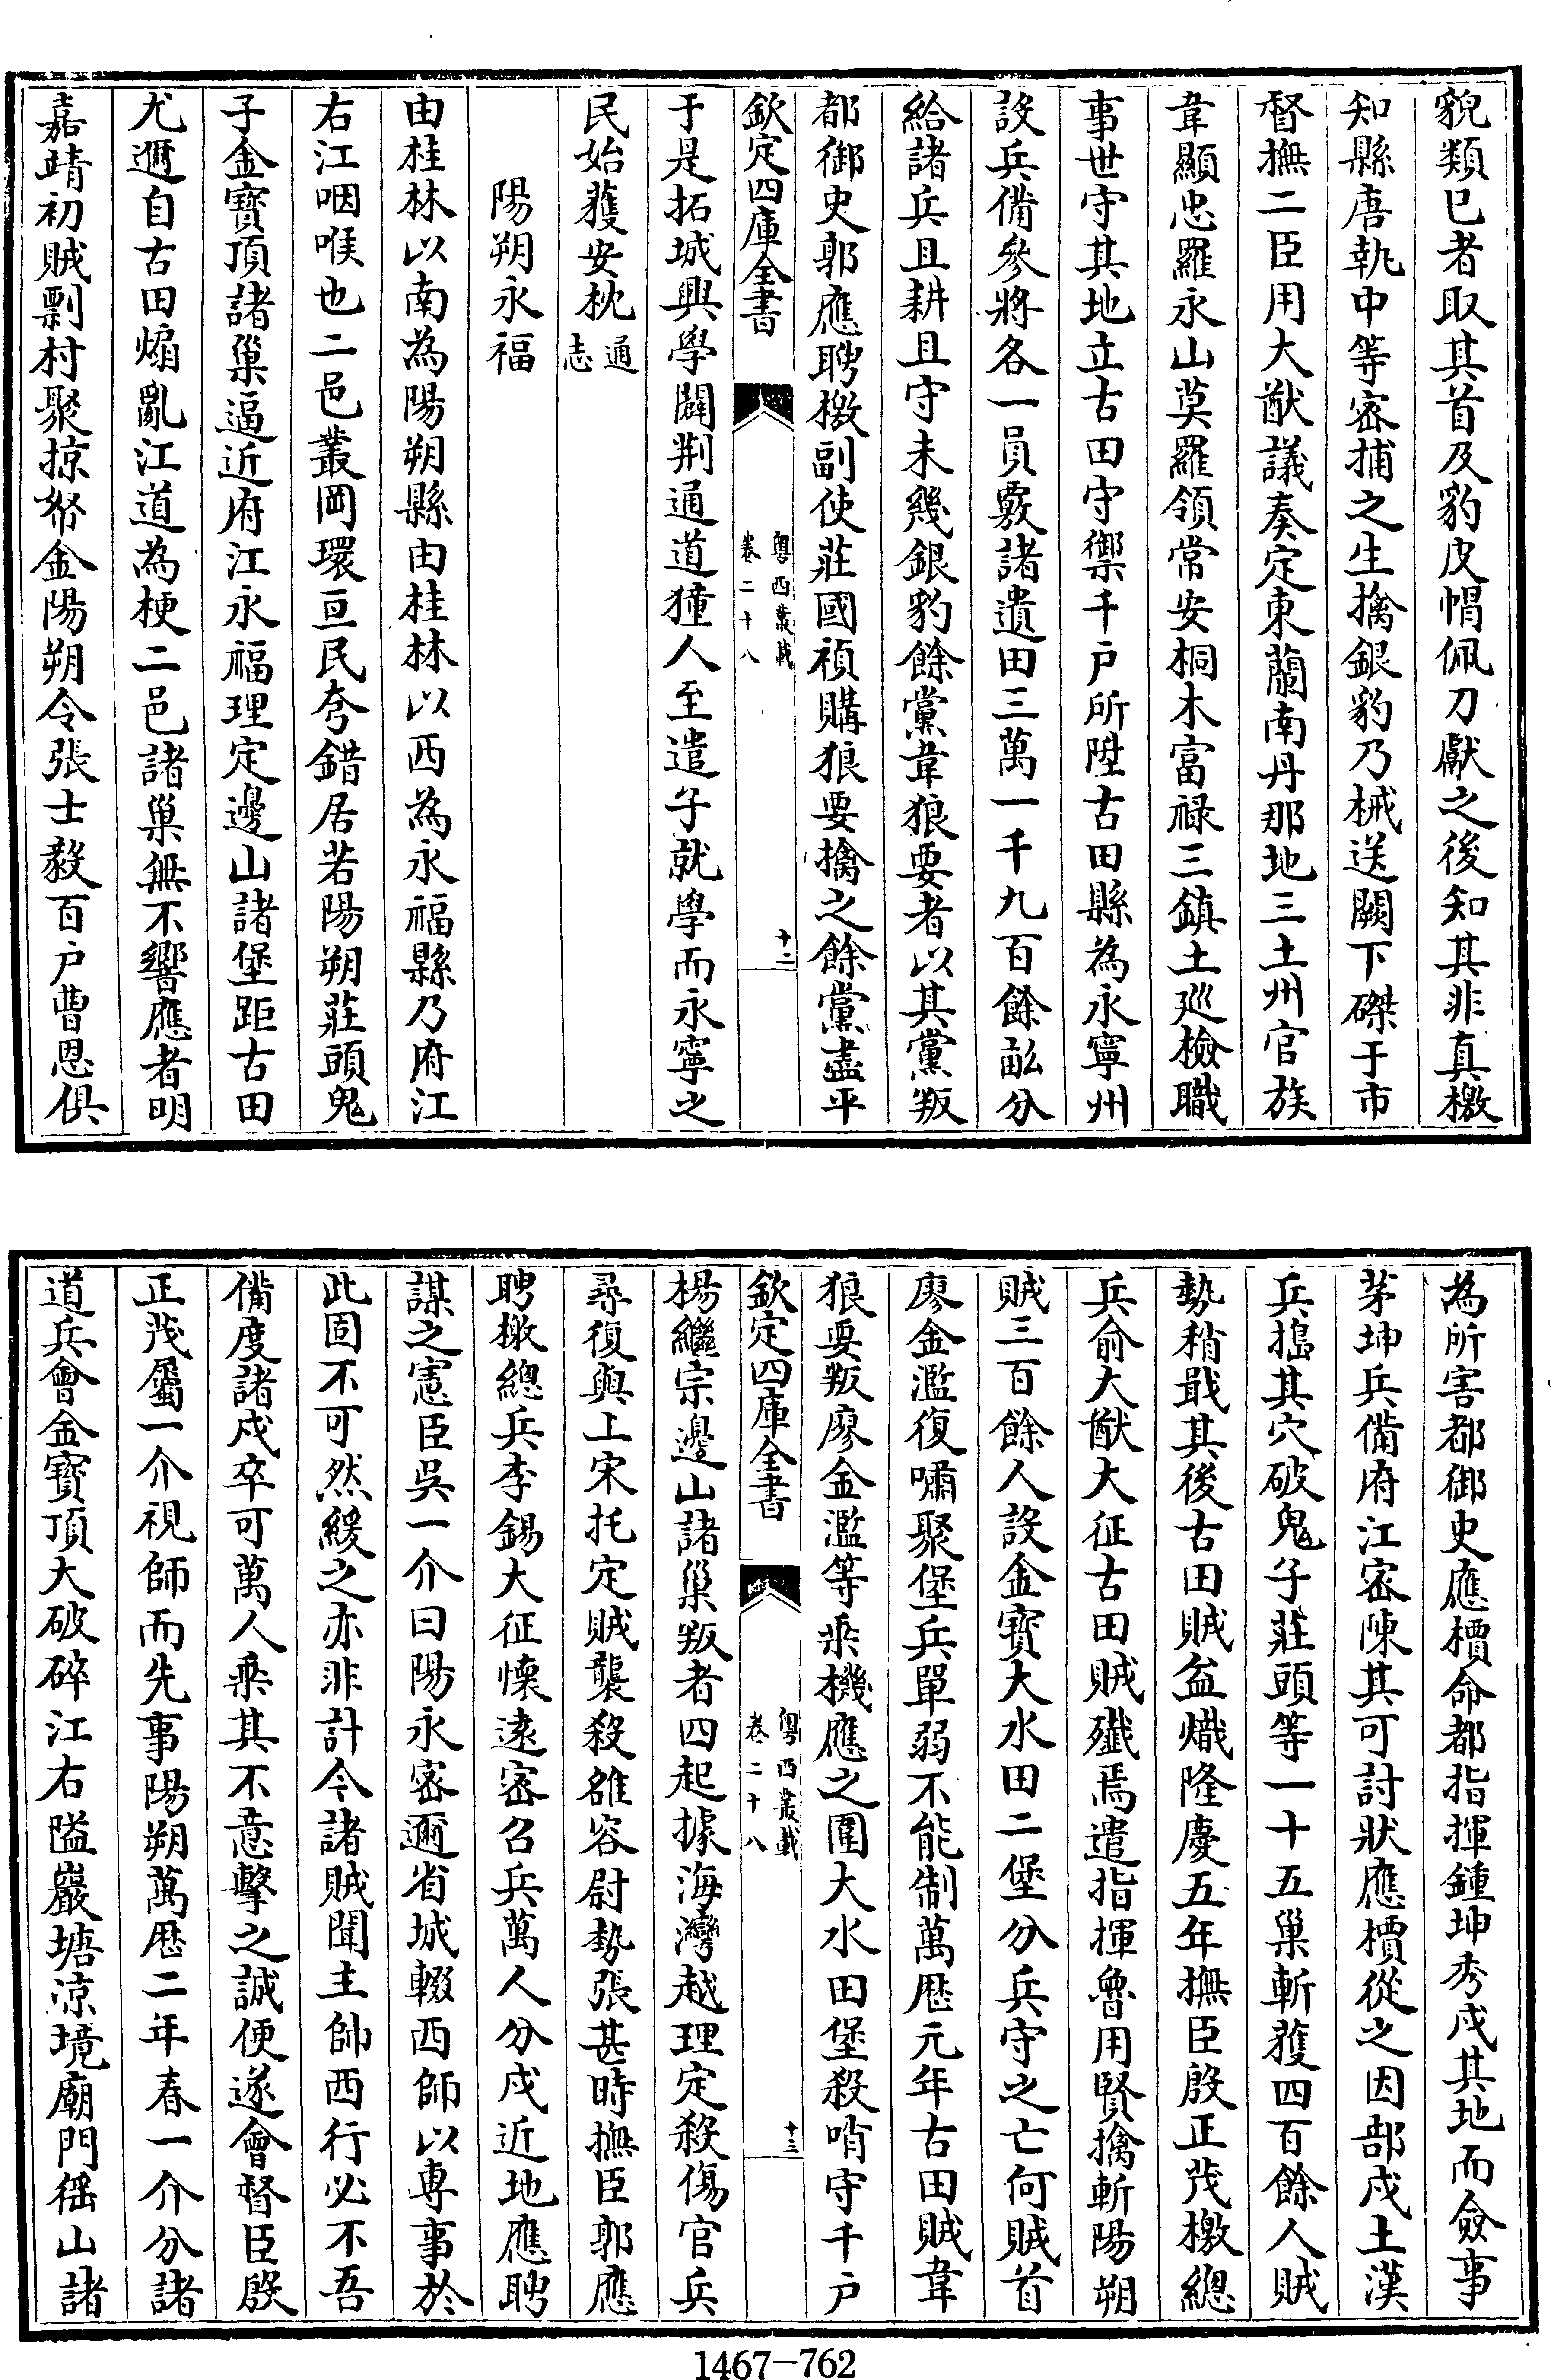 貌類已者取其首及豹皮帽佩刀獻之後知其非真檄
知縣唐執中等密捕之生擒銀豹乃械送闕下磔于市
督撫二臣用大猷議奏定東蘭南丹那地三土州官族
韋顯忠羅永山莫羅領常安桐木富禄三鎮土廵檢職
事世守其地立古田守禦千户所陞古田縣為永寧州
設兵備參將各一員覈諸遺田三萬一千九百餘畝分
給諸兵且耕且守未幾銀豹餘黨韋狼要者以其黨叛
都御史郭應聘檄副使莊國禎購狼要擒之餘黨盡平
欽定四庫全書
粤西叢載
卷二十八
十二
于是拓城興學闢荆通道獞人至遣子就學而永寧之
民始獲安枕通志
陽朔永福
由桂林以南為陽朔縣由桂林以西為永福縣乃府江
右江咽喉也二邑叢岡環亘民夸錯居若陽朔莊頭鬼
子金寶頂諸巢逼近府江永福理定邊山諸堡距古田
尤邇自古田煽亂江道為梗二邑諸巢無不響應者明
嘉靖初賊剽村聚掠帑金陽朔令張士毅百户曹恩俱
為所害都御史應檟命都指揮鍾坤秀戍其地而僉事
茅坤兵備府江密陳其可討狀應檟從之因部戍土漢
兵搗其穴破鬼子莊頭等一十五巢斬獲四百餘人賊
勢稍戢其後古田賊益熾隆慶五年撫臣殷正茂檄總
兵俞大猷大征古田賊殲焉遣指揮魯用賢擒斬陽朔
賊三百餘人設金寶大水田二堡分兵守之亡何賊首
廖金濫復嘯聚堡兵單弱不能制萬厯元年古田賊韋
狼要叛廖金濫等乘機應之圍大水田堡殺哨守千户
欽定四庫全書
粤西叢載
卷二十八
十三
楊繼宗邊山諸巢叛者四起據海灣越理定殺傷官兵
尋復與上宋托定賊襲殺雒容尉勢張甚時撫臣郭應
聘檄總兵李錫大征懷遠密召兵萬人分戍近地應聘
謀之憲臣吳一介曰陽永密邇省城輟西師以專事於
此固不可然緩之亦非計今諸賊聞主帥西行必不吾
備度諸戍卒可萬人乘其不意擊之誠便遂會督臣殷
正茂屬一介視師而先事陽朔萬厯二年春一介分諸
道兵會金寶頂大破碎江右隘巖塘凉境廟門徭山諸
1467-762